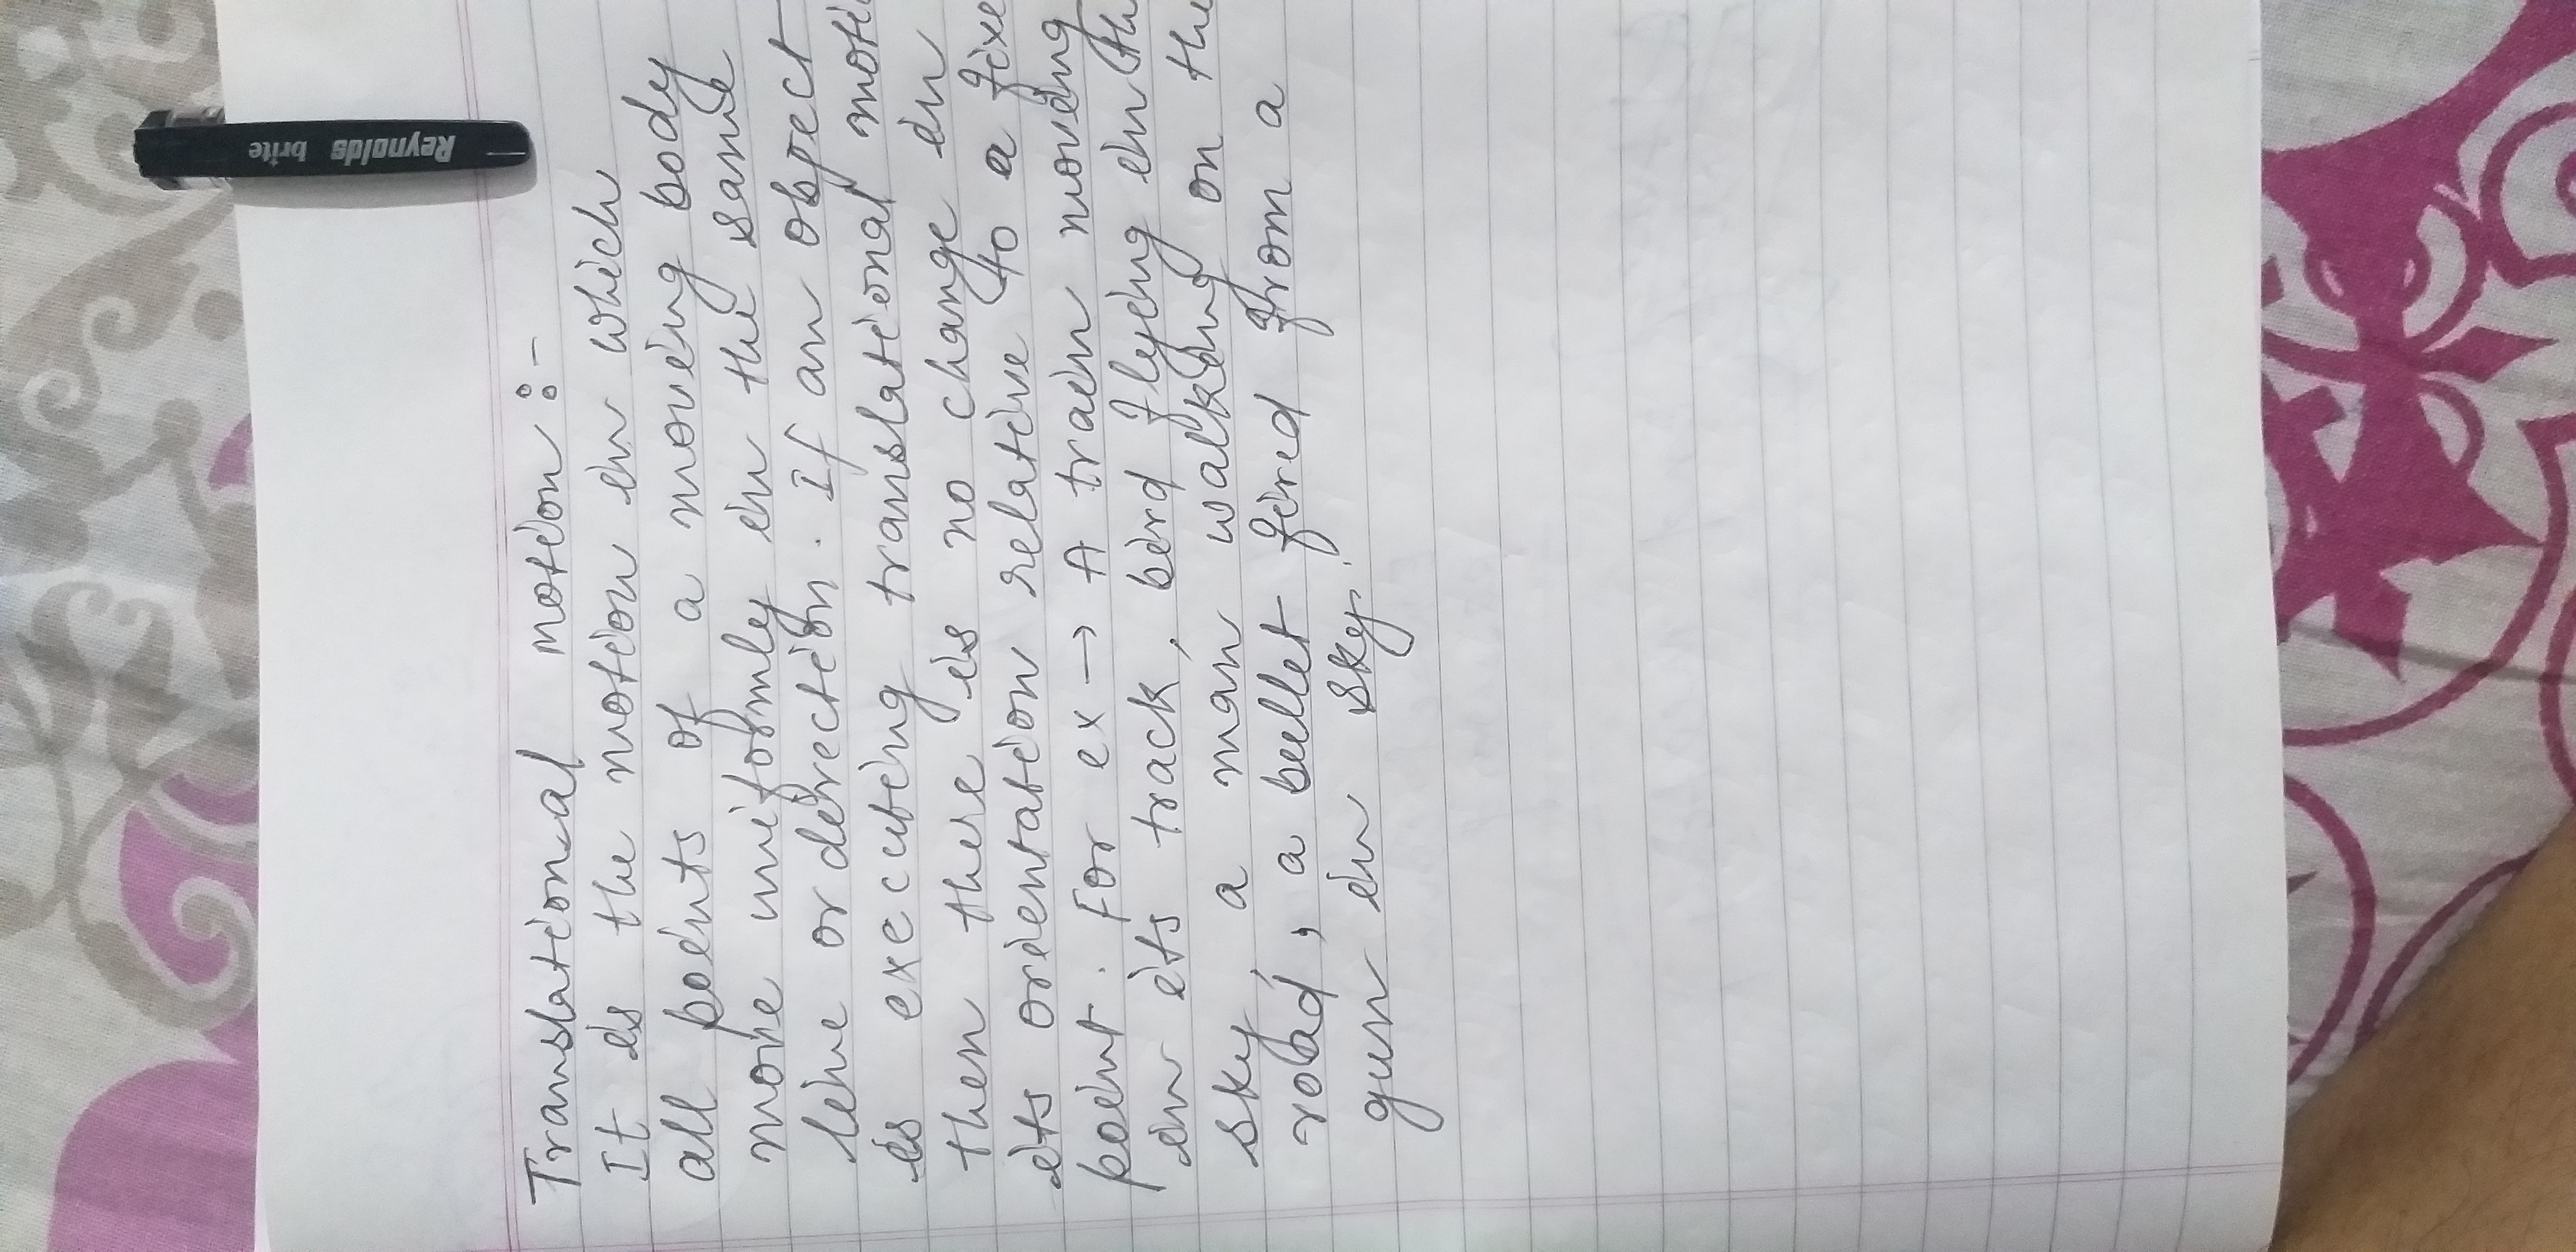 Translational motion :-
It is the motion in which
all points of a moving body
move uniformly in the same
line or direction. If an object
is executing translational moti
then there is no change in
its orientation relative to a fixe
point. For ex → A train moving
in its track, bird flying in the
sky, a man walking on the
road, a bullet fired from a
gun in sky.
Reynolds brite